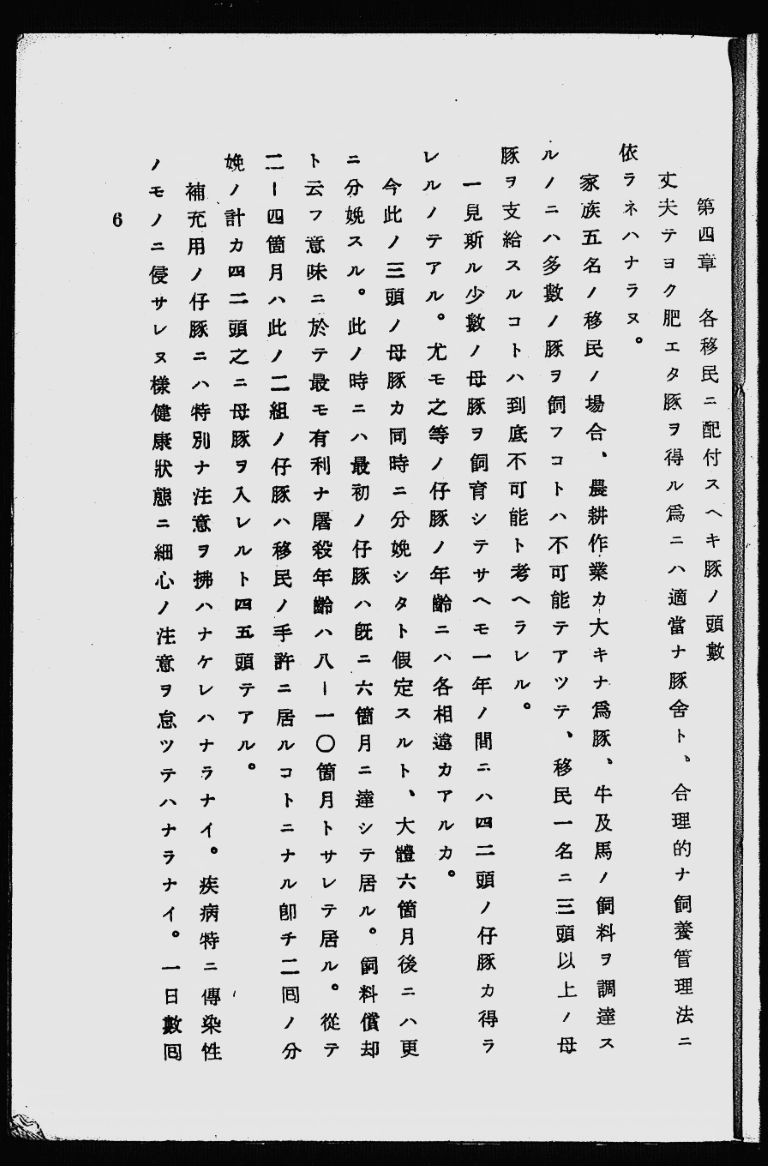 第四章　各移民ニ配付スヘキ豚ノ頭數
丈夫テヨク肥エタ豚ヲ得ル爲ニハ適當ナ豚舍ト、合理的ナ飼養管理法ニ
依ラネハナラヌ。
家族五名ノ移民ノ場合、農耕作業カ大キナ爲豚、牛及馬ノ飼料ヲ調達ス
ルノニハ多數ノ豚ヲ飼フコトハ不可能テアツテ、移民一名ニ三頭以上ノ母
豚ヲ支給スルコトハ到底不可能ト考ヘラレル。
一見斯ル少數ノ母豚ヲ飼育シテサヘモ一年ノ間ニハ四二頭ノ仔豚カ得ラ
レルノテアル。尤モ之等ノ仔豚ノ年齡ニハ各相違カアルカ。
今此ノ三頭ノ母豚カ同時ニ分娩シタト假定スルト、大體六箇月後ニハ更
ニ分娩スル。此ノ時ニハ最初ノ仔豚ハ旣ニ六箇月ニ達シテ居ル。飼料償却
ト云フ意味ニ於テ最モ有利ナ屠殺年齡ハ八ー一〇箇月トサレテ居ル。從テ
二ー四箇月ハ此ノ二組ノ仔豚ハ移民ノ手許ニ居ルコトニナル卽チ二囘ノ分
娩ノ計カ四二頭之ニ母豚ヲ入レルト四五頭テアル。
補充用ノ仔豚ニハ特別ナ注意ヲ拂ハナケレハナラナイ。疾病特ニ傳染性
ノモノニ侵サレヌ樣健康狀態ニ細心ノ注意ヲ怠ツテハナラナイ。一日數囘
6